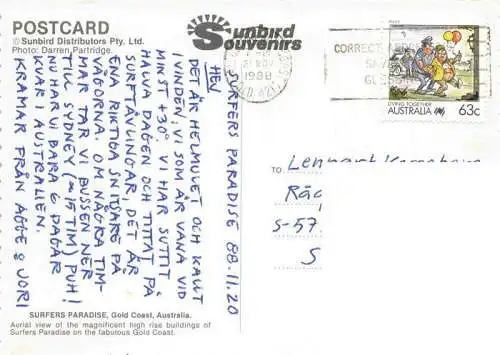 POSTCARD
© Sunbird Distributors Pty. Ltd.
Photo: Darren Partridge.
Sunbird
Souvenirs
SURFERS PARADISE 88.11.20
HEJ
DET ÄR HELMULET OCH KALLT
I VINDEN, VI SOM ÄR VANA VID
MINST +30° VI HAR SUTTIT
HALVA DAGEN OCH TITTAT PÅ
SURFTÄVLINGAR, DET ÄR
ENA RIKTIGA SNITSARE PÅ
VÅGORNA. OM NÅGRA TIM-
MAR TAR VI BUSSEN NER
TILL SYDNEY (≈ 15 TIM) PUH!
NU HAR VI BARA 6 DAGAR
KVAR I AUSTRALIEN.
KRAMAR FRÅN AGGE & JORI
SURFERS PARADISE, Gold Coast, Australia.
Aerial view of the magnificent high rise buildings of
Surfers Paradise on the fabulous Gold Coast.
1988
CORRECT
LIVING TOGETHER
AUSTRALIA 63c
TO:
Lennart
S-57
S